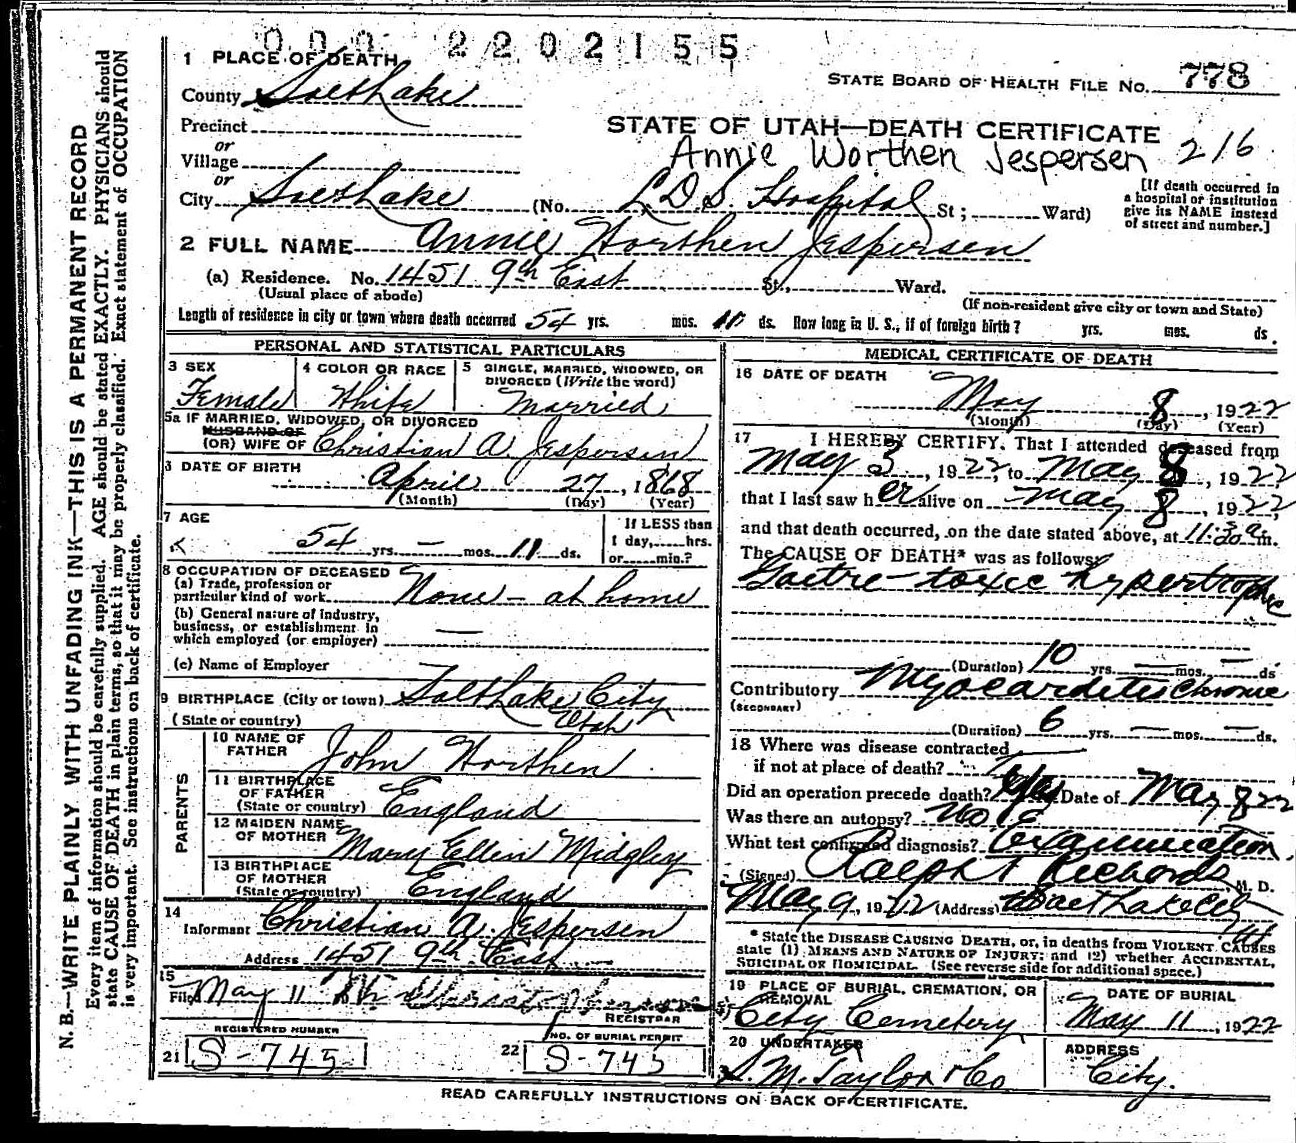 000 2202155
1 PLACE OF DEATH
STATE BOARD OF HEALTH FILE NO. 778
County Salt Lake
Precinct
or
Village
or
STATE OF UTAH—DEATH CERTIFICATE
Annie Worthen Jespersen 216
City Salt Lake (No. L.D.S. Hospital St; Ward)
[If death occurred in
a hospital or institution
give its NAME instead
of street and number.]
2 FULL NAME Annie Worthen Jespersen
(a) Residence. No. 1451 9th East St., Ward.
(Usual place of abode) (If non-resident give city or town and State)
Length of residence in city or town where death occurred 54 yrs. mos. 11 ds. How long in U. S., if of foreign birth? yrs. mos. ds.
PERSONAL AND STATISTICAL PARTICULARS
3 SEX
Female
4 COLOR OR RACE
White
5 SINGLE, MARRIED, WIDOWED, OR
DIVORCED (Write the word)
Married
5a IF MARRIED, WIDOWED, OR DIVORCED
HUSBAND OF
(OR) WIFE OF Christian A. Jespersen
6 DATE OF BIRTH
April 27, 1868
(Month) (Day) (Year)
7 AGE
54 yrs. — mos. 11 ds.
If LESS than
1 day, hrs.
or min.?
8 OCCUPATION OF DECEASED
(a) Trade, profession or
particular kind of work None - at home
(b) General nature of industry,
business, or establishment in
which employed (or employer) —
(c) Name of Employer
9 BIRTHPLACE (City or town) Salt Lake City
(State or country) Utah
PARENTS
10 NAME OF
FATHER John Worthen
11 BIRTHPLACE
OF FATHER
(State or country) England
12 MAIDEN NAME
OF MOTHER Mary Ellen Midgley
13 BIRTHPLACE
OF MOTHER
(State or country) England
14
Informant Christian A. Jespersen
Address 1451 9th East
15
Filed May 11
REGISTRAR
REGISTERED NUMBER
21 S-745
NO. OF BURIAL PERMIT
22 S-745
MEDICAL CERTIFICATE OF DEATH
16 DATE OF DEATH
May 8, 1922
(Month) (Day) (Year)
17 I HEREBY CERTIFY, That I attended deceased from
May 3, 1922, to May 8, 1922
that I last saw her alive on May 8, 1922,
and that death occurred, on the date stated above, at 11:30 a.m.
The CAUSE OF DEATH* was as follows:
Goitre - toxic hypertrophic
(Duration) 10 yrs. — mos. — ds.
Contributory Myocarditis Chronic
(SECONDARY)
(Duration) 6 yrs. — mos. — ds.
18 Where was disease contracted
if not at place of death?
Did an operation precede death? Yes Date of May 8 22
Was there an autopsy? No
What test confirmed diagnosis? Examination
(Signed) Ralph T Richards, M. D.
May 9, 1922 (Address) Salt Lake City
* State the DISEASE CAUSING DEATH, or, in deaths from VIOLENT CAUSES
state (1) MEANS AND NATURE OF INJURY; and (2) whether ACCIDENTAL,
SUICIDAL or HOMICIDAL. (See reverse side for additional space.)
19 PLACE OF BURIAL, CREMATION, OR
REMOVAL
City Cemetery
DATE OF BURIAL
May 11, 1922
20 UNDERTAKER
S. M. Taylor & Co
ADDRESS
City.
READ CAREFULLY INSTRUCTIONS ON BACK OF CERTIFICATE.
N. B.—WRITE PLAINLY WITH UNFADING INK—THIS IS A PERMANENT RECORD
Every item of information should be carefully supplied. AGE should be stated EXACTLY. PHYSICIANS should
state CAUSE OF DEATH in plain terms, so that it may be properly classified. Exact statement of OCCUPATION
is very important. See instructions on back of certificate.